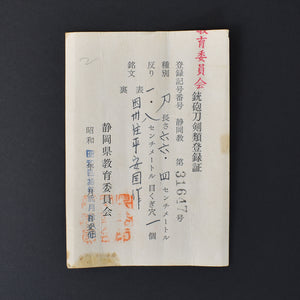 教育委員会
銃砲刀剣類登録証
登録記号番号 静岡教 第31647号
種別 刀 長さ 六六・四 センチメートル
反り 一・八 センチメートル 目くぎ穴 一 個
銘文 表 因州住平安国作
裏
昭和
静岡県教育委員会